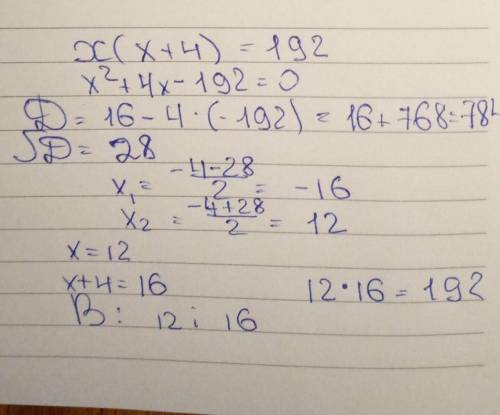 x(x+4) = 192
x²+4x-192=0
D = 16 - 4·(-192) = 16+768=784
√D = 28
x₁ = (-4-28)/2 = -16
x₂ = (-4+28)/2 = 12
x=12
x+4=16
12·16=192
В: 12 і 16